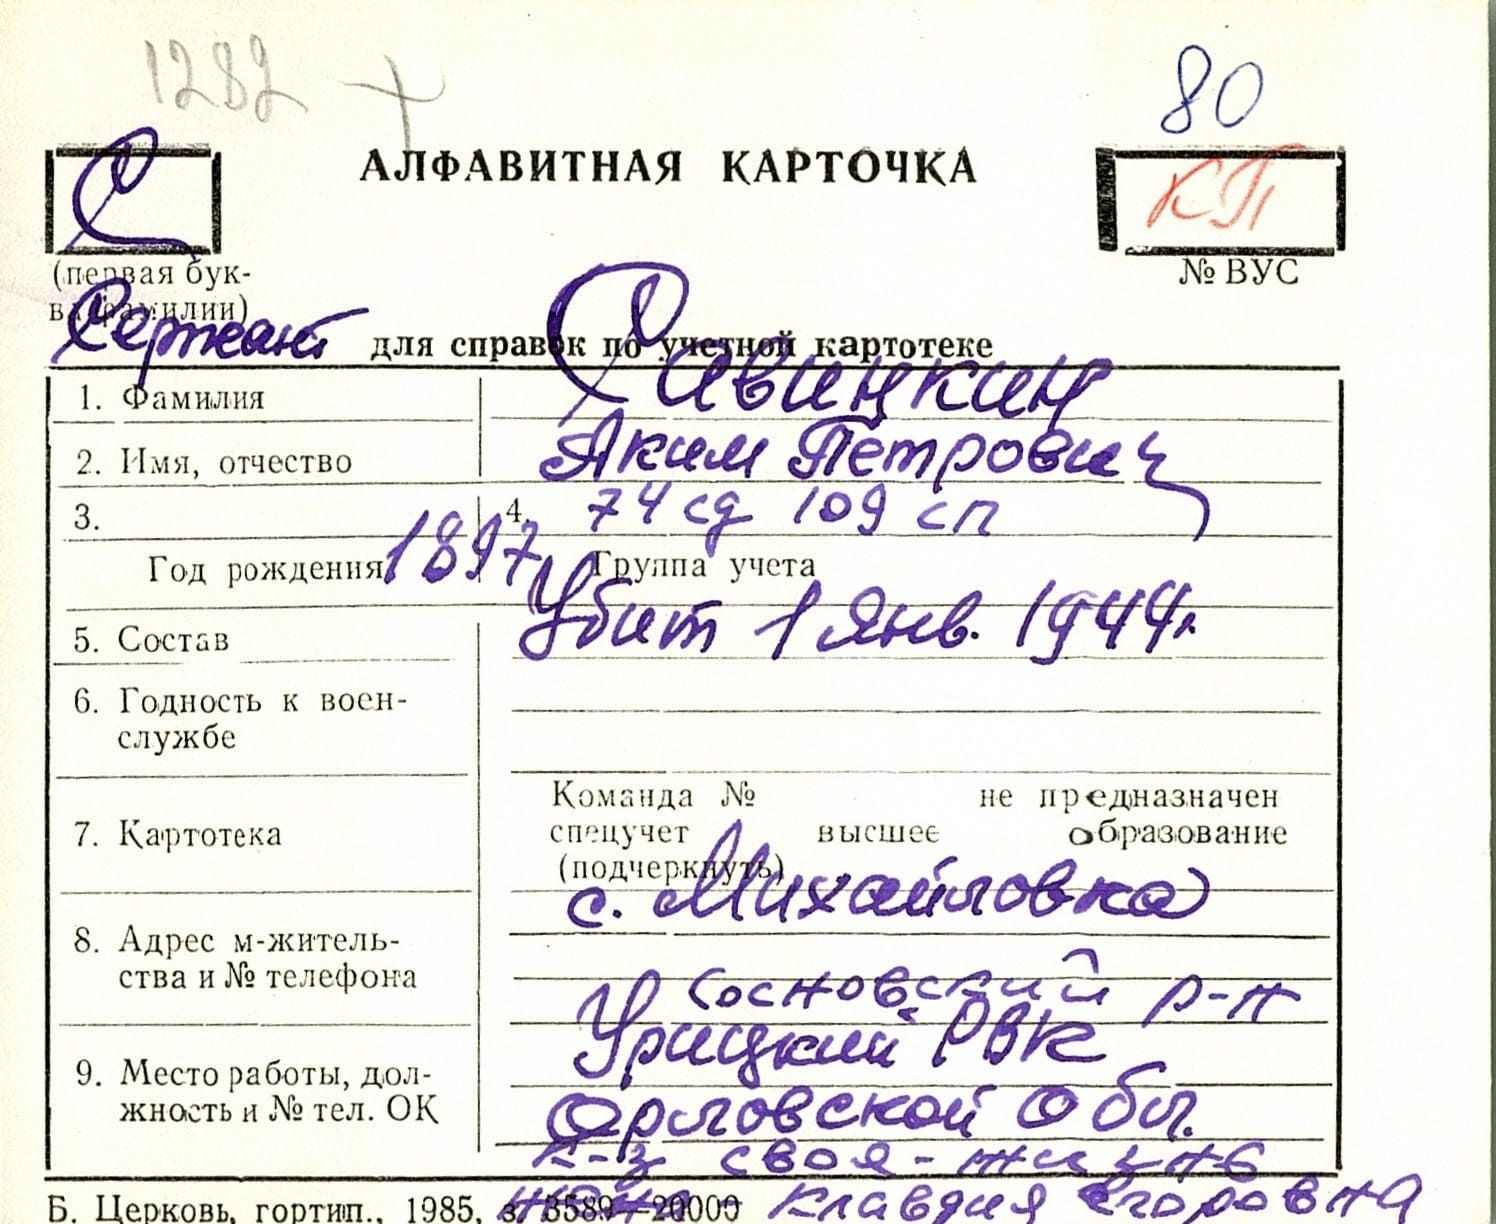 1282
80
АЛФАВИТНАЯ КАРТОЧКА
С
КП
(первая бук-
ва фамилии)
№ ВУС
Сержант для справок по учетной картотеке
1. Фамилия Савицкий
2. Имя, отчество Аким Петрович
3. 4. 74 сд 109 сп
Год рождения 1897 Группа учета
5. Состав Убит 1 янв. 1944г.
6. Годность к воен-
службе
Команда № не предназначен
7. Картотека спецучет высшее образование
(подчеркнуть)
с. Михайловка
8. Адрес м-житель-
ства и № телефона
Сосновский р-н
Урицкий РВК
9. Место работы, дол-
жность и № тел. ОК
Орловской обл.
к-з своя-жизнь
Б. Церковь, гортип., 1985, з. 3589—20000
жена Клавдия Егоровна